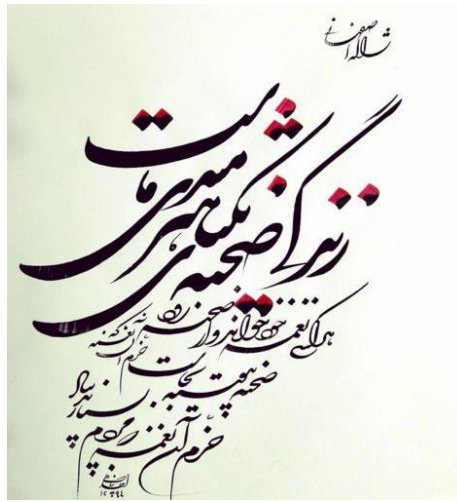 ژاله اصفهانی
زندگی صحنه‌ی یکتای هنرمندی ماست
هر کسی نغمه خود خواند و از صحنه رود
صحنه پیوسته بجاست
خرم آن نغمه که مردم بسپارند بیاد